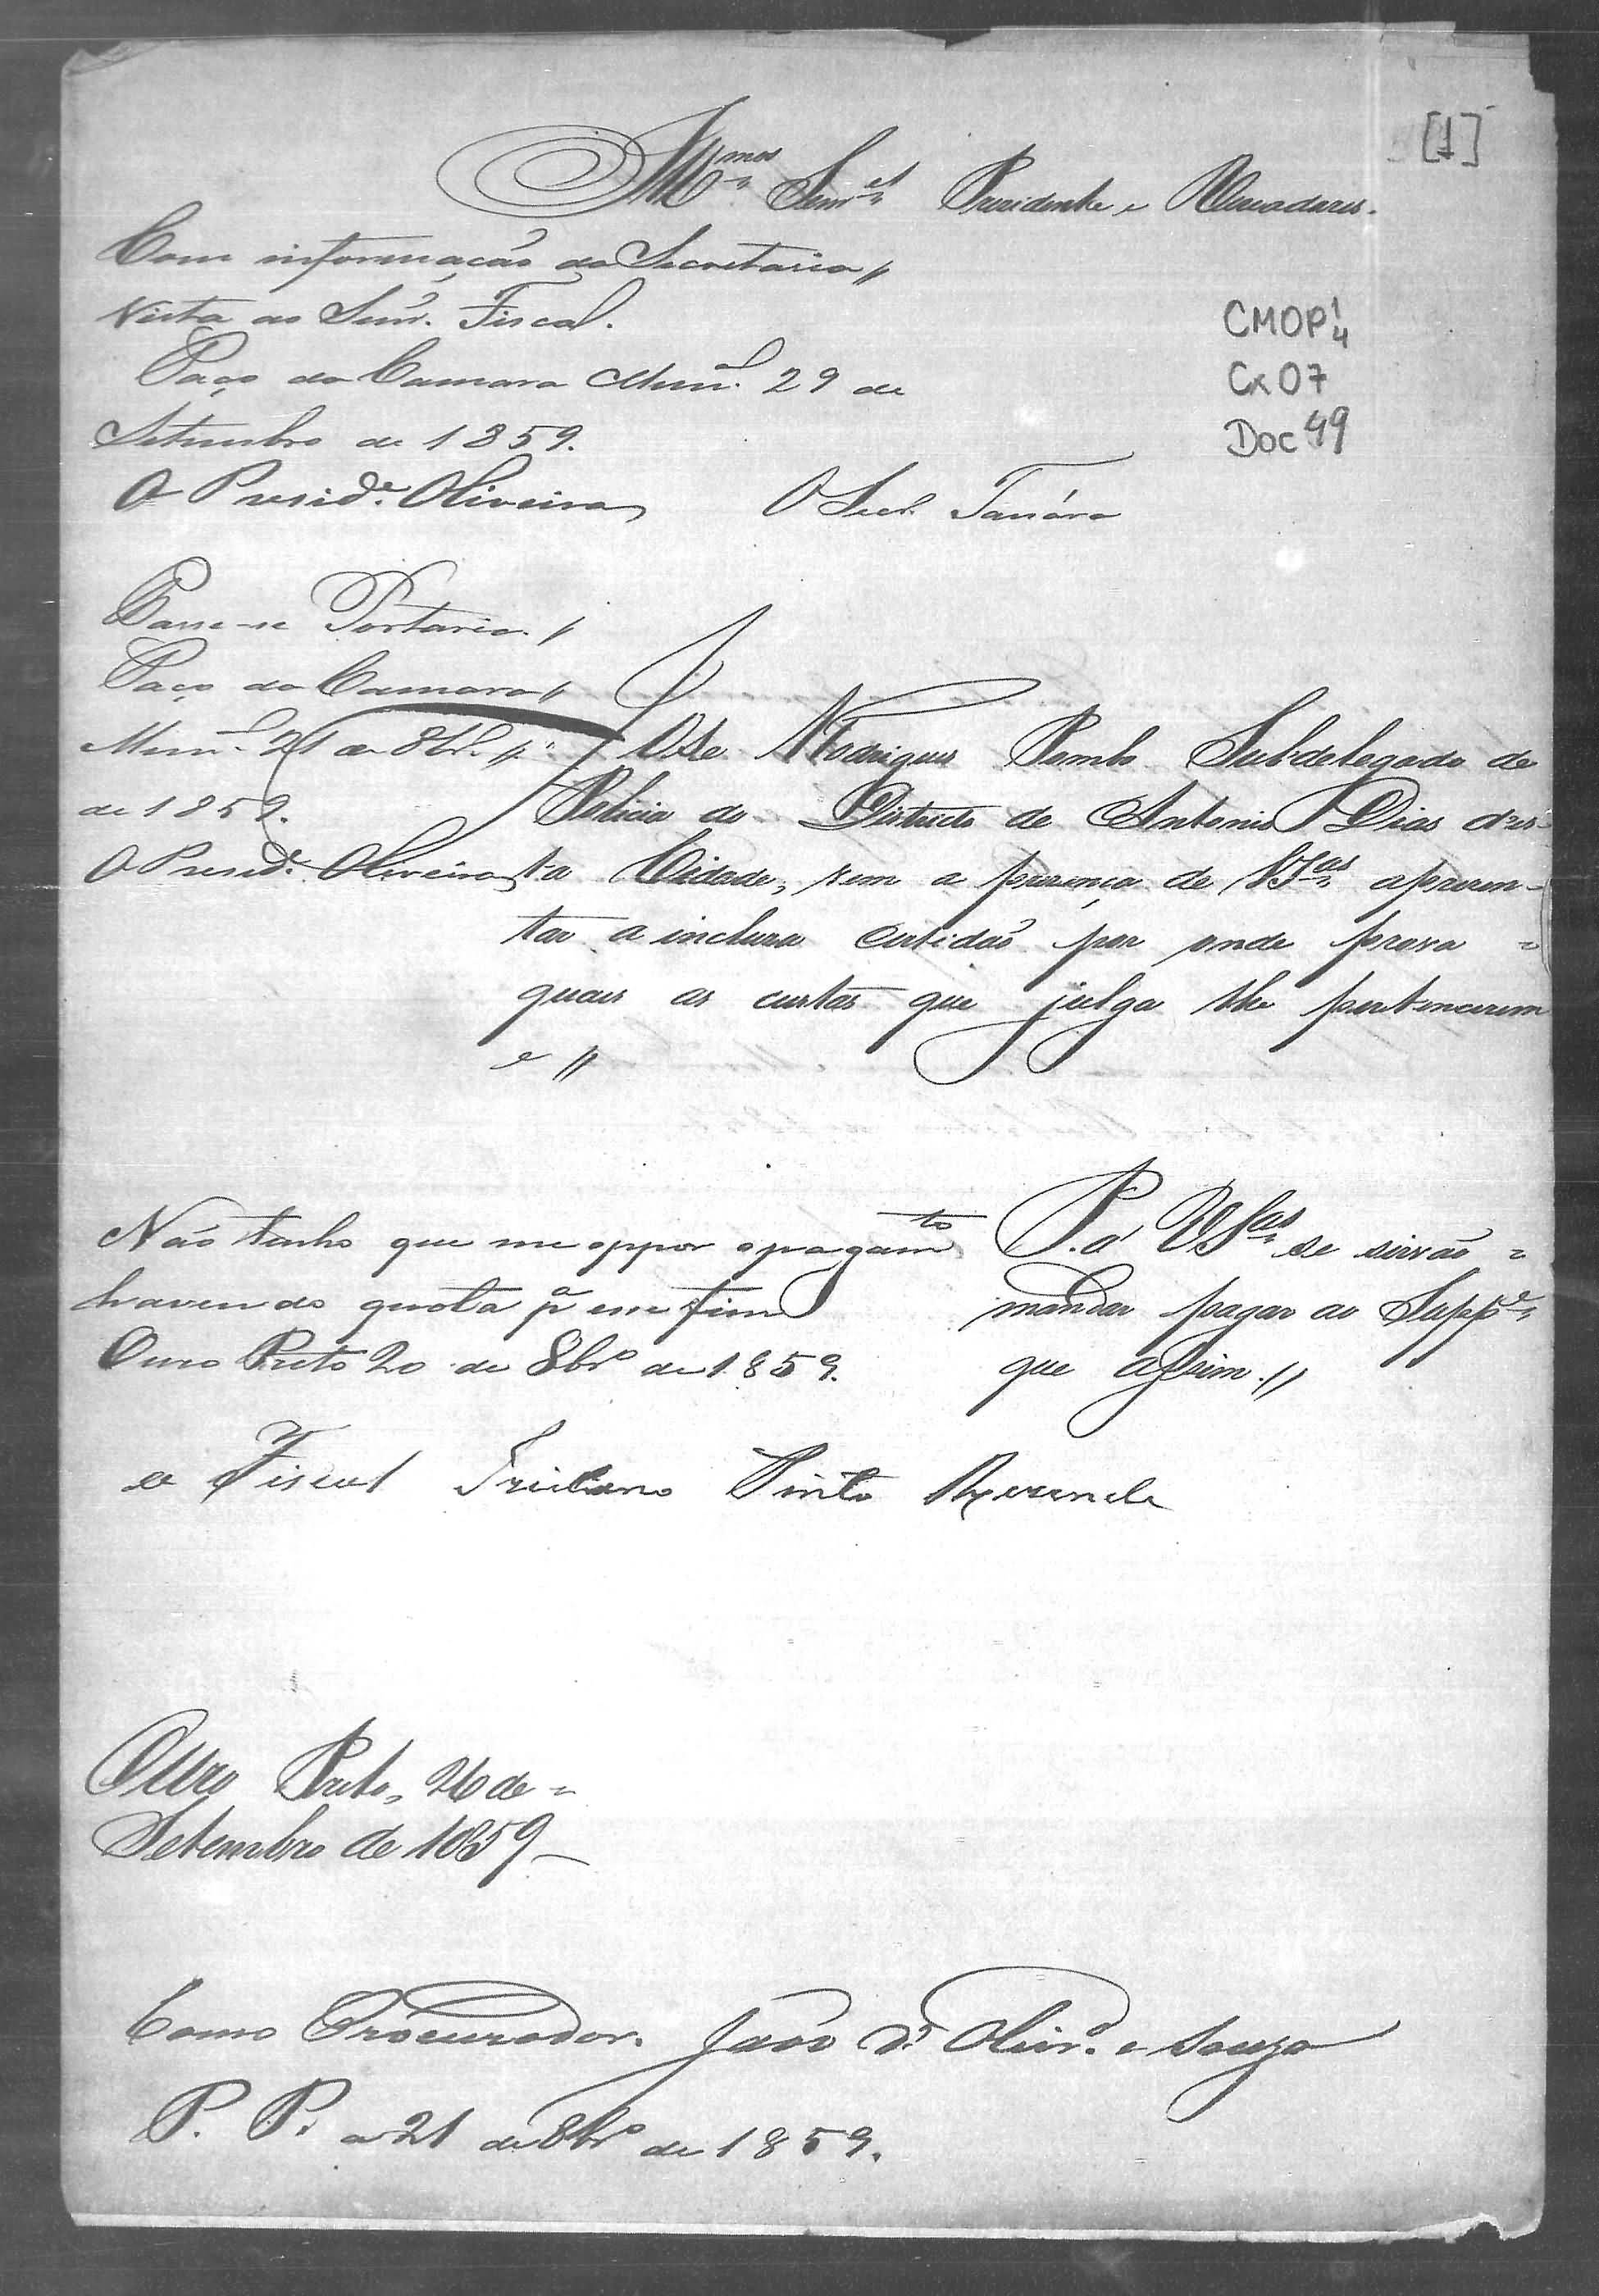 [1]
Ill.mos Senr.es Presidente e Vereadores.
Com informação da Secretaria,,
Vista ao Senr. Fiscal.
Paço da Camara Mun.al 29 de
Setembro de 1859.
O Presid.e Oliveira O Secr.
CMOP 1/4
Cx 07
Doc 49
Passe-se Portaria.,,
Paço da Camara,,
Mun.al 21 de 8br.,,
de 1859.
O Presid.e Oliveira
José Rodrigues Pombo Subdelegado de
Policia do Districto de Antonio Dias d'es-
ta Cidade, vem a presença de VS.as apresen-
tar a inclusa certidão por onde prova =
quaes as custas que julga lhe pertencerem
e,,
P. a VS.as se sirvão =
mandar pagar ao Supp.e
que assim.,,
Não tenho que me oppor o pagam.to
havendo quota p.a esse fim
Ouro Preto 20 de 8br.o de 1859.
o Fiscal Pinto Rezende
Ouro Preto, 26 de =
Setembro de 1859
Como Procurador. João d' Oliv.a e Souza
P. P. a 21 de 8br.o de 1859.